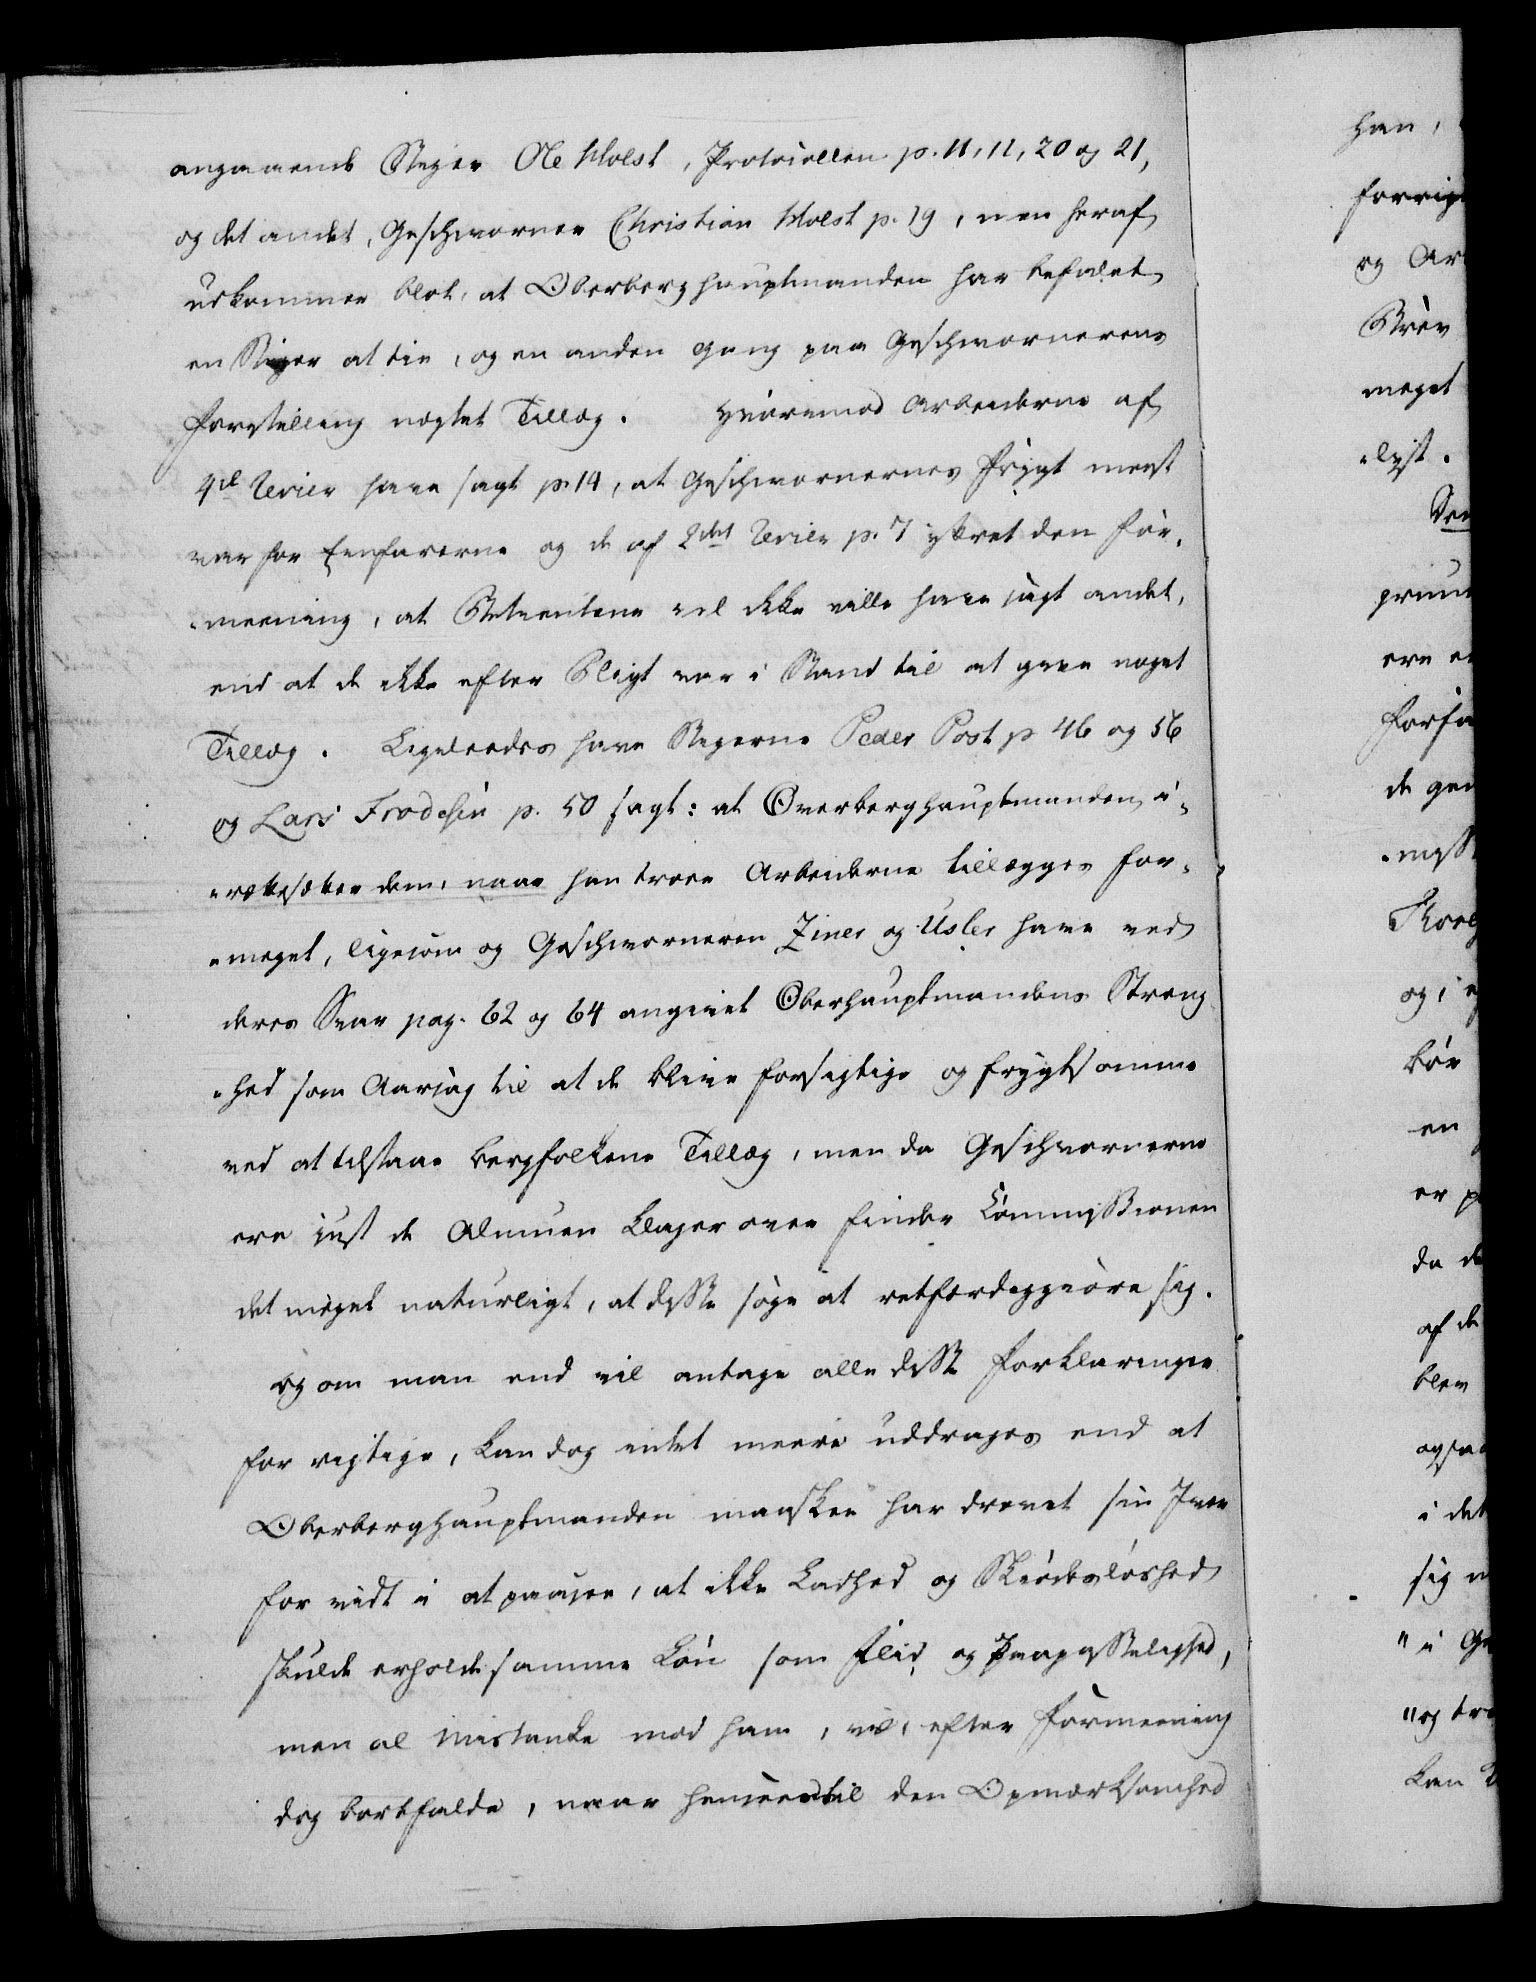 angaaende Stiger Ole Holst, Protocollen p. 11, 11, 20 og 21,
og det andet, Geschworner Christian Holst p. 19, men heraf
udkommer blot, at Oberberghauptmanden har befalet
en Stiger at tie, og en anden gang paa Geschwornerens
Forestilling nægtet Tillæg. Hvorimod Arbeiderne af
4de Revier have sagt p. 14, at Geschwornernes Frygt meest
var for Eenfarerne og de af 2det Revier p. 7 yttret den For-
meening, at vel ikke ville have sagt andet,
end at de ikke efter Pligt var i Stand til at give noget
Tillæg. Ligeledes have Stigerne Peder Post p 46 og 56
og Lars Frodesen p. 50 sagt: at Overberghauptmanden i-
rettesætter dem, naar han troer Arbeiderne tillægges for-
meget, ligesom og Geschwornerne Ziner og Usler have ved
deres Svar pag. 62 og 64 angivet Oberhauptmandens Streng-
hed som Aarsag til at de blive forsigtige og frygtsomme
ved at tilstaae Bergfolkene Tillæg, men da Geschwornerne
ere just de Almuen klager over finder Commissionen
det meget naturligt, at disse søge at retfærdiggiøre sig.
og om man end vil antage alle disse Forklaringer
for rigtige, kan dog intet meere uddrages end at
Oberberghauptmanden maaskee har drevet sin Iver
for vidt i at paasee, at ikke Ladhed og Skiødesløshed
skulde erholde samme Løn som Fliid og Paapasselighed,
men al Mistanke mod ham, vil, efter Formeening
dog bortfalde, naar hensees til den Opmærksomhed
han,
og
meget
lyst.
og i
bør
en
er
da
af de
blev
i det
sig
" i
"og
kan